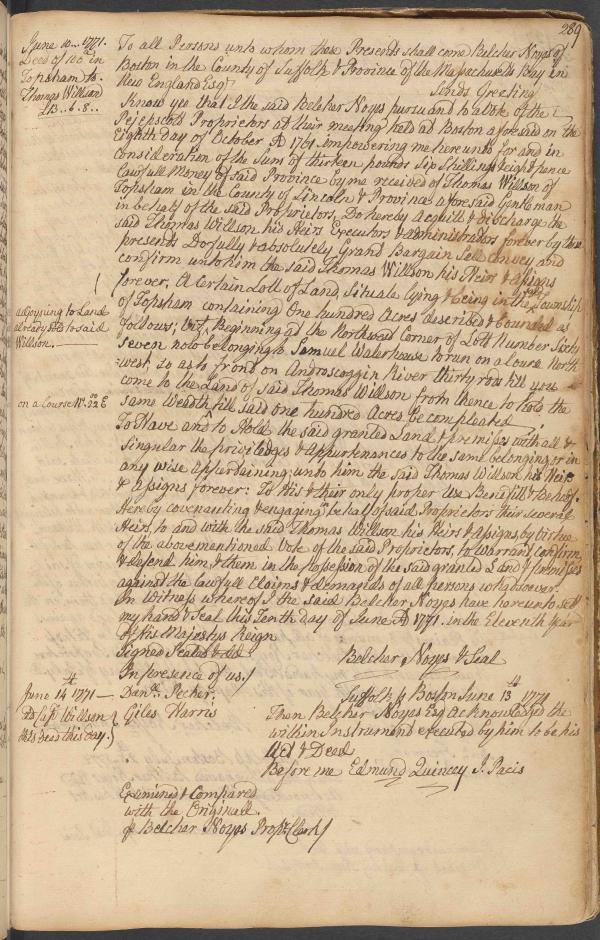 289
June 10.. 1771.
Deed of 100 in
Topsham to
Thomas Willson
13..6..8..
To all Persons unto whom these Presents shall come Belcher Noyes of
Boston in the County of Suffolk & Province of the Massachusetts Bay in
New England Esqr
Sends Greeting
Know yee that I the said Belcher Noyes pursuand to a Vote of the
Pejepscott Proprietors at their meeting held at Boston aforesaid on the
Eighth Day of October AD 1761. impowering me hereunto for and in
consideration of the Sum of thirteen pounds Six Shillings & eight pence
Lawfull Money of said Province by me received of Thomas Willson of
Topsham in the County of Lincoln & Province aforesaid Gentleman
in behalf of the said Proprietors, Do hereby acquitt & discharge the
said Thomas Willson his Heirs Executors & administrators forever by these
presents Do fully & absolutely Grand Bargain Sell Convey and
confirm unto him the said Thomas Willson his Heirs & assigns
forever, A Certain Lott of Land, Situate lying & being in the Township
of Topsham containing One hundred Acres described & bounded as
adjoyning to Land
already to said
Willson.
follows; Vizt, Beginning at the Northwest Corner of Lott Number Sixty
Seven now belonging to Samuel Waterhouse to run on a Course North
west, so as to front on Androscoggin River thirty rods till you
come to the Land of said Thomas Willson from thence to hold the
on a Course No. 22 E
same Weadth till said one hundred Acres be compleated
To Have and to Hold the said granted Land & premises with all &
Singular the priviledges & Appurtenances to the same belonging or in
any wise appertaining; unto him the said Thomas Willson his Heirs
& assigns forever: To His & their only proper Use Benefitt & Behoof.
Hereby covenanting & engaging, behalf of said Proprietors their several
Heirs, to and with the said Thomas Willson his Heirs & assigns, by virtue
of the abovementioned Vote of the said Proprietors, to warrant confirm
& defend him & them in the possesion of the said granted Land & premises
against the lawfull Claims & demands of all persons whadsoever.
In Witness whereof I the said Belcher Noyes have hereunto sett
my hand & Seal this Tenth day of June AD 1771. in the Eleventh Year
of His Majestys Reign
Signed Sealed &
Belcher Noyes & Seal
In presence of us./
Danll. Pecker.
Giles Harris
June 14th 1771
Willson
this Deed this day.
Suffolk Boston June 13th 1771
Then Belcher Noyes Esq acknowledged the
within Instrument executed by him to be his
Act & Deed
Before me Edmund Quincey J. Pacis
Examined & Compared
with the Originall.
Belcher Noyes Propr. Clerk/